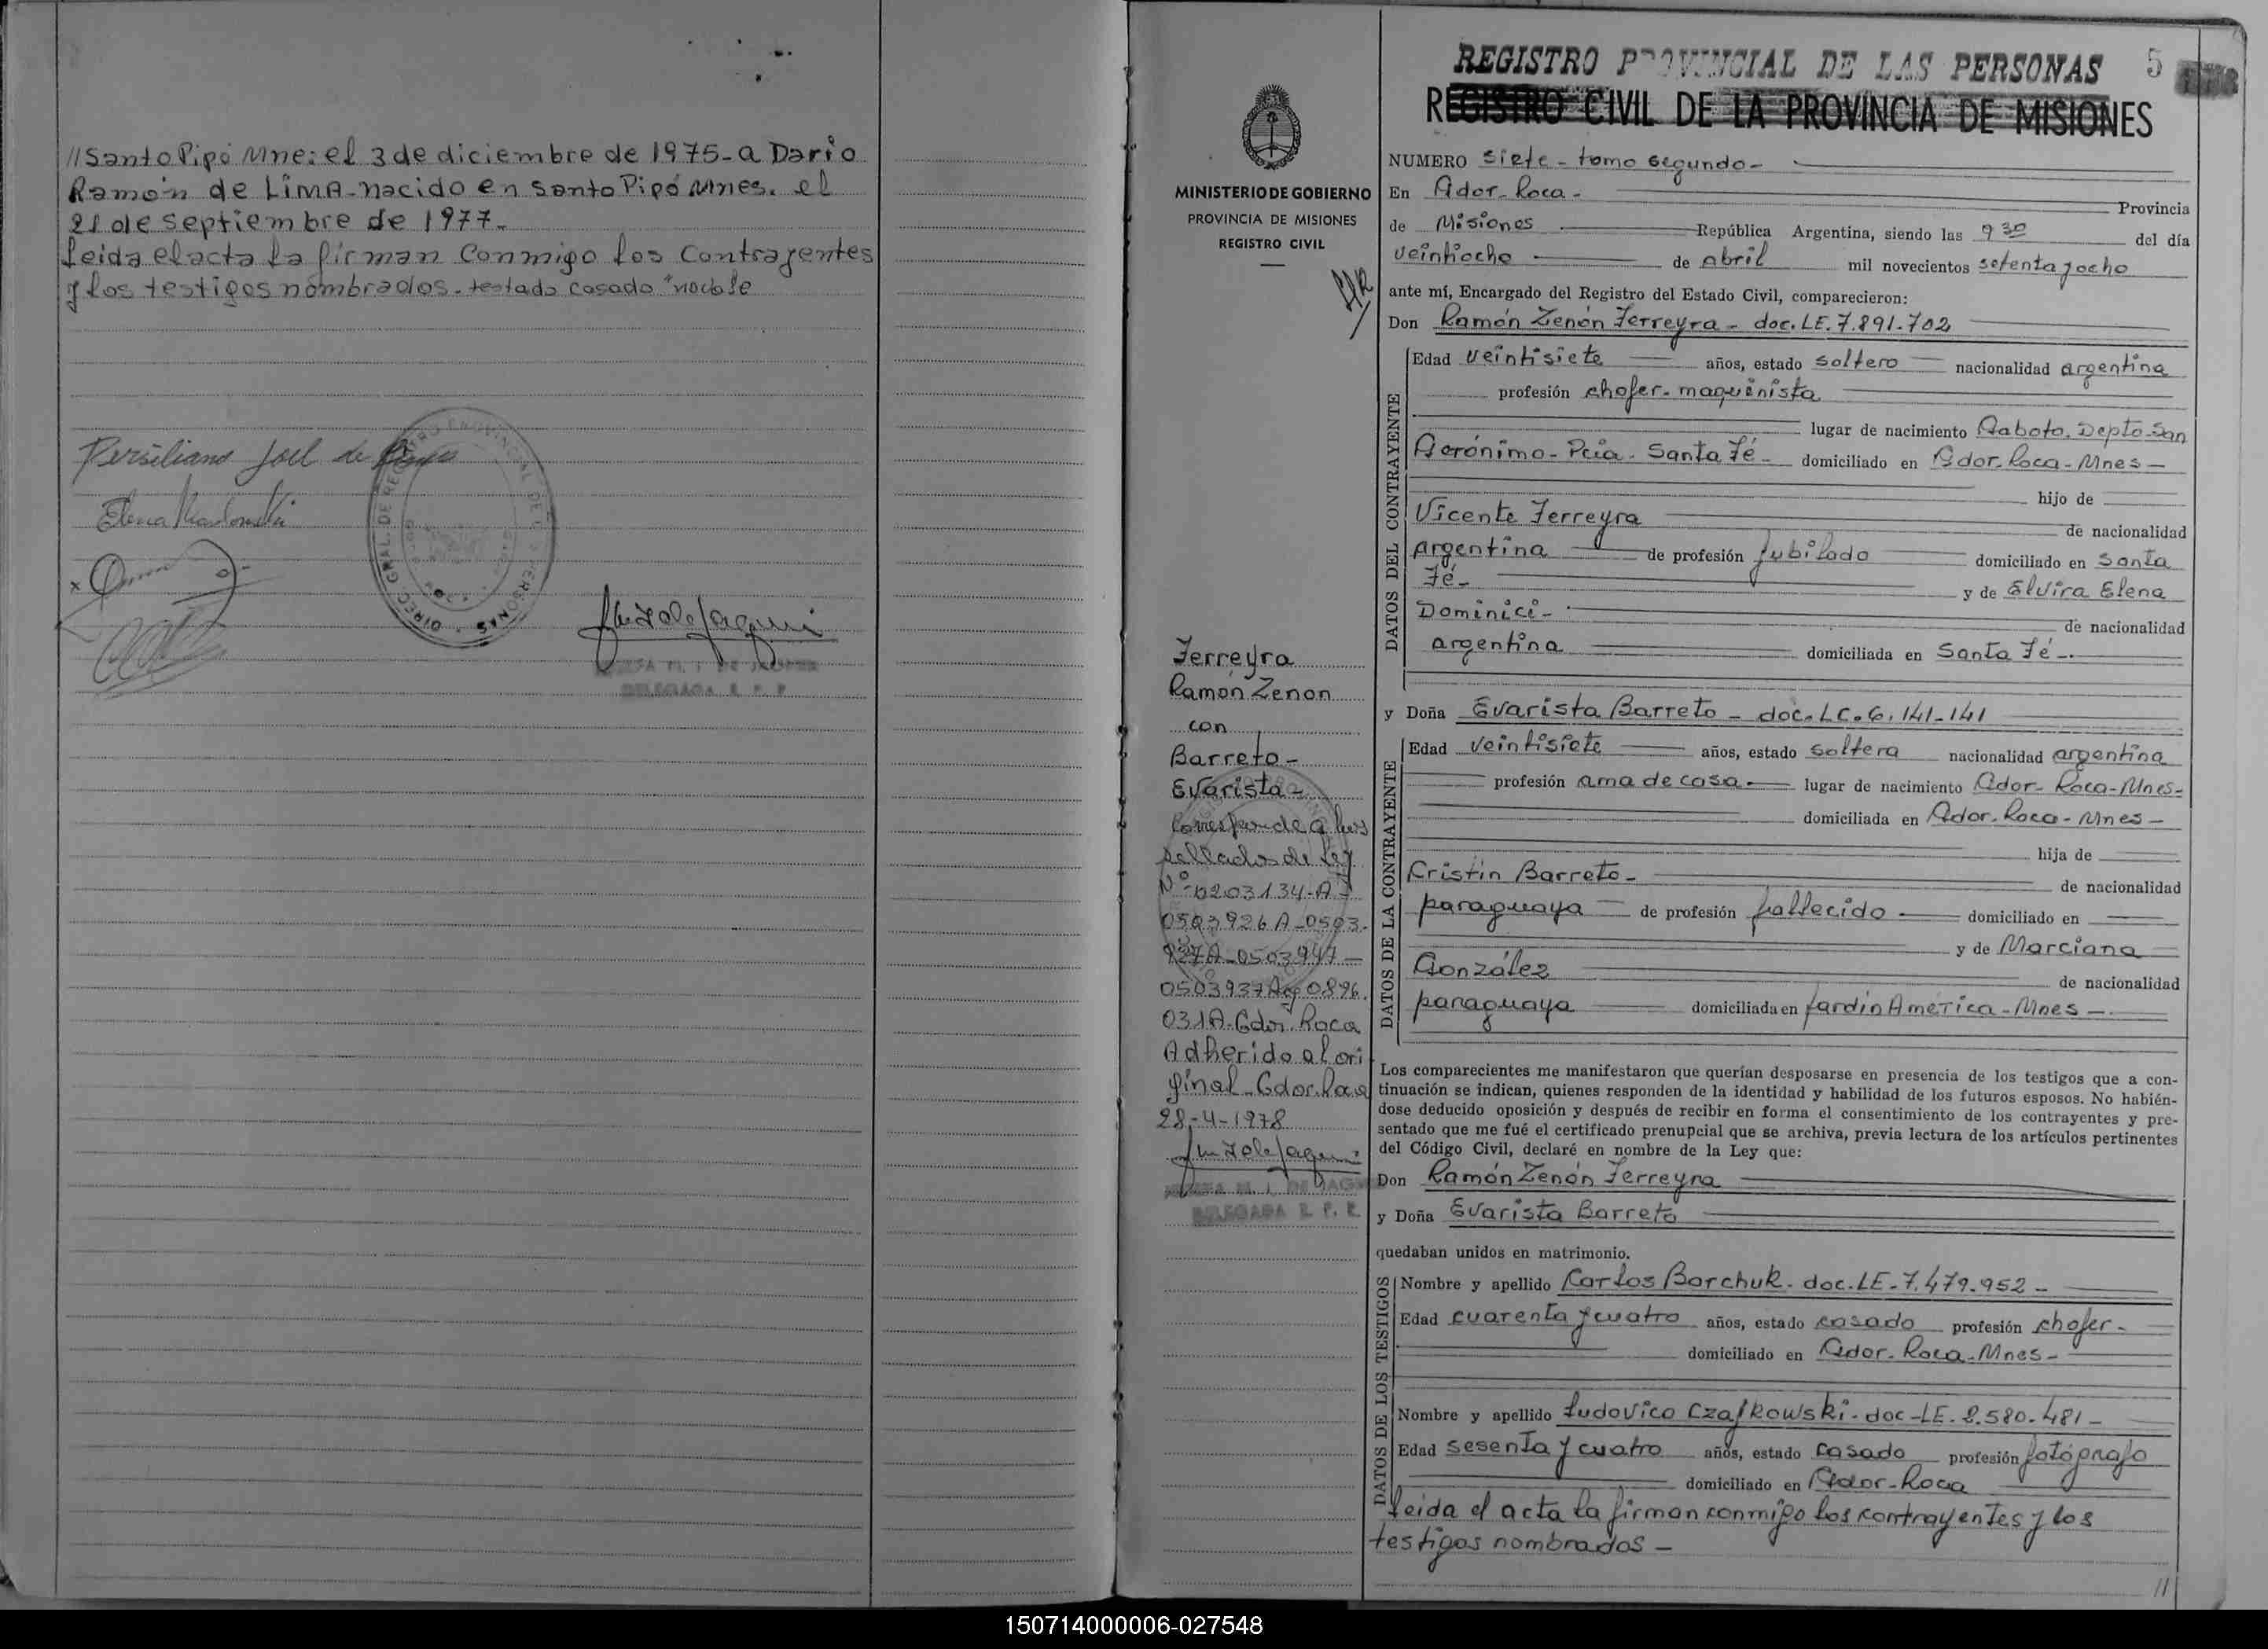 //Santo Pipó Mne: el 3 de diciembre de 1975- a Dario
Ramón de Lima- nacido en Santo Pipó Mnes. el
21 de septiembre de 1977-
Leida el acta la firman conmigo los contrayentes
y los testigos nombrados- testado casado "no vale
Persiliano Joel de
Elena
DELEGADA R. P. P.
MINISTERIO DE GOBIERNO
PROVINCIA DE MISIONES
REGISTRO CIVIL
Ferreyra
Ramón Zenon
con
Barreto-
Evarista-
Corresponde a los
sellados de ley
Nº-0203134-A-
0503926A-0503.
927A-0503947-
0503937A y 0896.
031A-Gdor. Roca
Adherido al ori
ginal-Gdor. Roca
28-4-1978
DELEGADA R. P. P.
REGISTRO PROVINCIAL DE LAS PERSONAS 5
REGISTRO CIVIL DE LA PROVINCIA DE MISIONES
NUMERO siete- tomo segundo-
En Gdor- Roca-
Provincia
de Misiones República Argentina, siendo las 9 30 del día
veintiocho de abril mil novecientos setenta y ocho
ante mí, Encargado del Registro del Estado Civil, comparecieron:
Don Ramón Zenón Ferreyra- doc. LE. 7.891.702
DATOS DEL CONTRAYENTE
Edad veintisiete años, estado soltero nacionalidad argentina
profesión chofer- maquinista
lugar de nacimiento Gaboto, Depto San
Gerónimo- Pcia- Santa Fé- domiciliado en Gdor. Roca- Mnes-
hijo de
Vicente Ferreyra
de nacionalidad
argentina de profesión jubilado domiciliado en Santa
Fé-
y de Elvira Elena
Dominici-
de nacionalidad
argentina domiciliada en Santa Fé-.
y Doña Evarista Barreto- doc. LC. 6.141-141
DATOS DE LA CONTRAYENTE
Edad veintisiete años, estado soltera nacionalidad argentina
profesión ama de casa- lugar de nacimiento Gdor- Roca-Mnes-
domiciliada en Gdor. Roca- Mnes-
hija de
Cristin Barreto-
de nacionalidad
paraguaya de profesión fallecido domiciliado en
y de Marciana
González
de nacionalidad
paraguaya domiciliada en Jardin America- Mnes-
Los comparecientes me manifestaron que querían desposarse en presencia de los testigos que a con-
tinuación se indican, quienes responden de la identidad y habilidad de los futuros esposos. No habién-
dose deducido oposición y después de recibir en forma el consentimiento de los contrayentes y pre-
sentado que me fué el certificado prenupcial que se archiva, previa lectura de los artículos pertinentes
del Código Civil, declaré en nombre de la Ley que:
Don Ramón Zenón Ferreyra
y Doña Evarista Barreto
quedaban unidos en matrimonio.
DATOS DE LOS TESTIGOS
Nombre y apellido Carlos Borchuk. doc. LE-7.479.952-
Edad cuarenta y cuatro años, estado casado profesión chofer-
domiciliado en Gdor- Roca- Mnes-
Nombre y apellido Ludovico Czajkowski- doc-LE. 2.580.481-
Edad sesenta y cuatro años, estado casado profesión fotógrafo
domiciliado en Gdor-Roca
Leida el acta la firman conmigo los contrayentes y los
testigos nombrados-
//
150714000006-027548